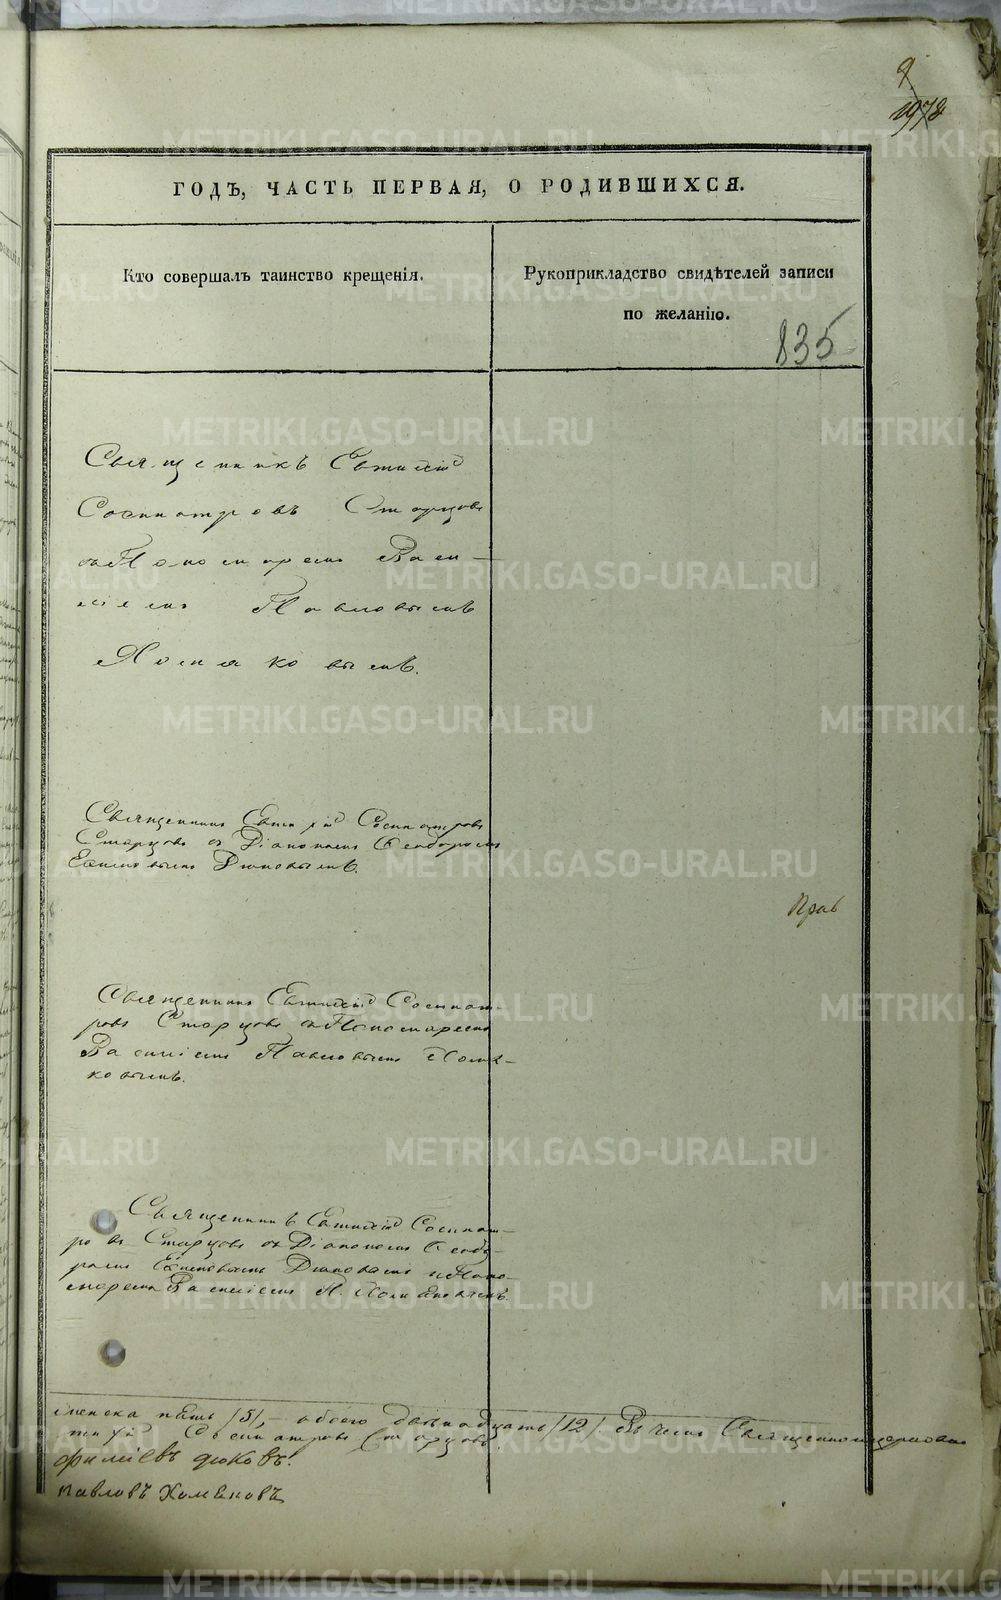 9
1978
ГОДЪ, ЧАСТЬ ПЕРВАЯ, О РОДИВШИХСЯ.
Кто совершалъ таинство крещенія.
Рукоприкладство свидѣтелей записи
по желанію.
835
Священникъ Евтихій
Сосипатровъ Старцовъ
съ Пономаремъ Васи-
ліемъ Павловымъ
Хомяковымъ.
Священникъ Евтихій Сосипатровъ
Старцовъ съ Діакономъ Ѳеодоромъ
Дюковымъ.
Прав
Священникъ Евтихій Сосипат-
ровъ Старцовъ съ Пономаремъ
Василіемъ Павловымъ Хомя-
ковымъ.
Священникъ Евтихій Сосипат-
ровъ Старцовъ съ Діакономъ Ѳеодо-
ромъ Дюковымъ и Поно-
маремъ Василіемъ П. Хомяковымъ.
женска пять /5/, а всего двѣнадцать /12/.
тихій Сосипатровъ Старцовъ.
Дюковъ.
Павловъ Хомяковъ
METRIKI.GASO-URAL.RU